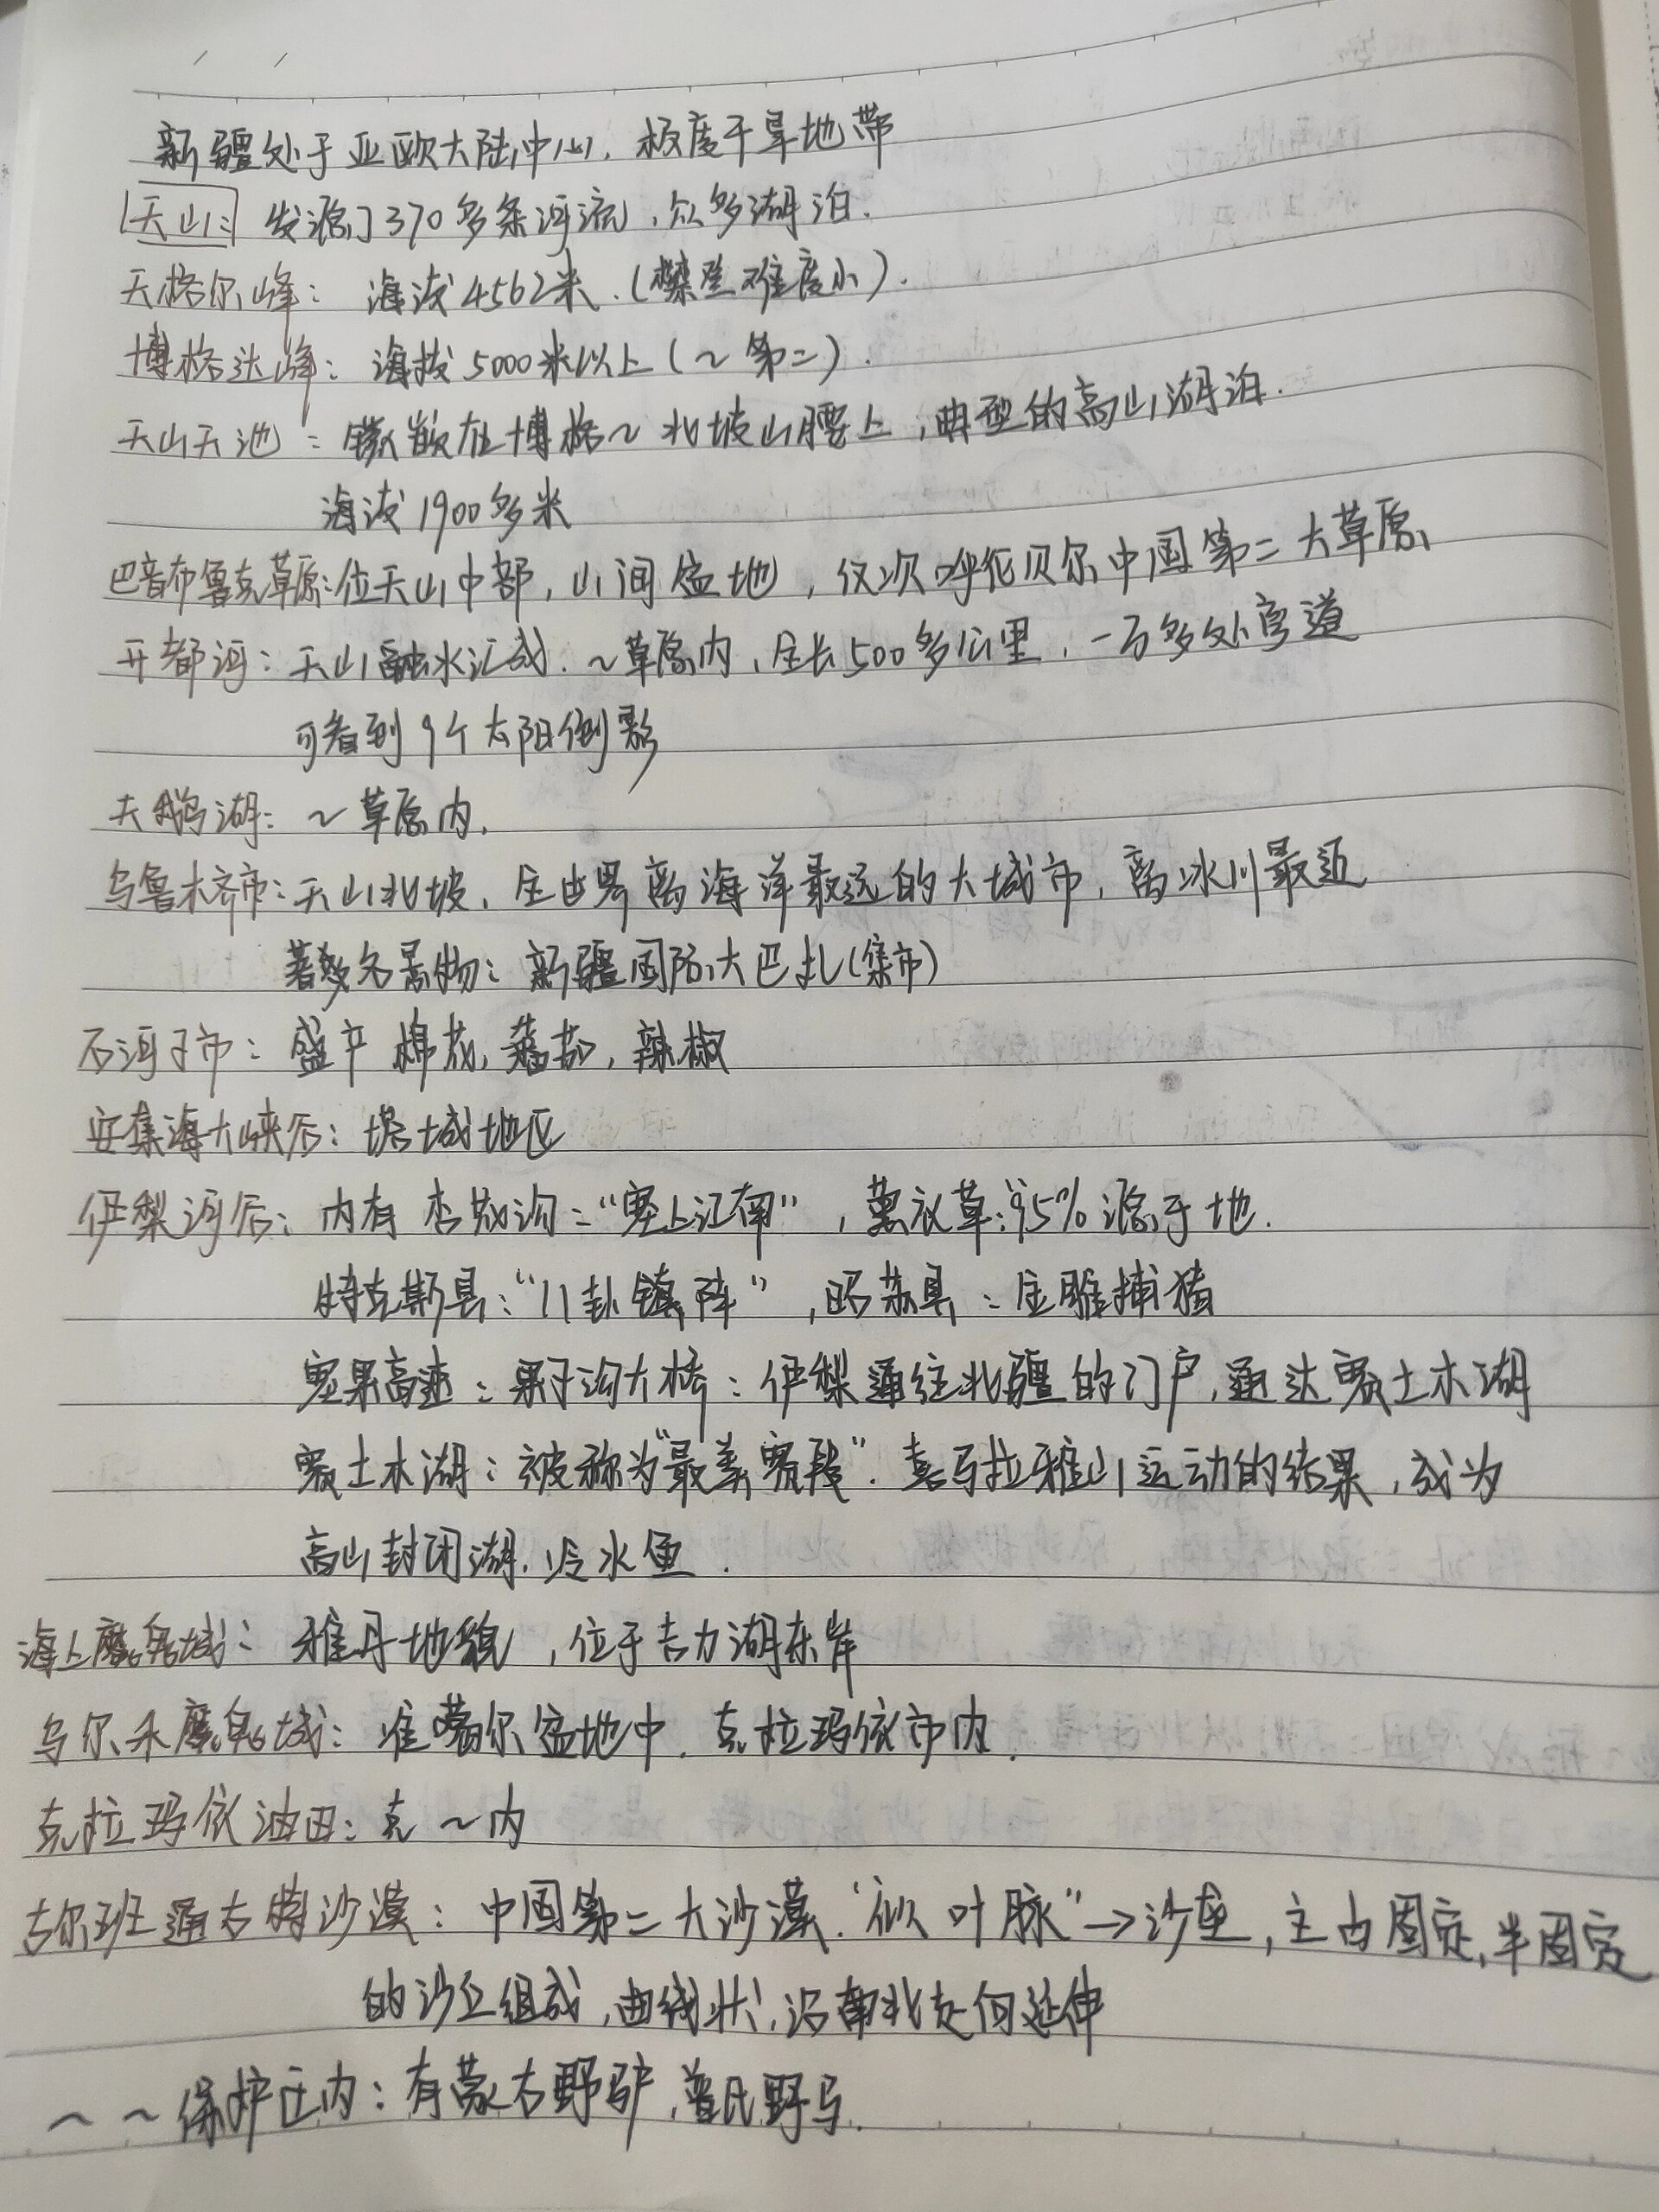 新疆处于亚欧大陆中心，极度干旱地带
天山：发源了370多条河流，众多湖泊.
天格尔峰：海拔4562米.（攀登难度小）.
博格达峰：海拔5000米以上（～第二）.
天山天池：镶嵌在博格～北坡山腰上，典型的高山湖泊.
海拔1900多米
巴音布鲁克草原：位天山中部，山间盆地，仅次呼伦贝尔中国第二大草原
开都河：天山融水汇成.～草原内，全长500多公里，一万多处弯道
可看到9个太阳倒影
天鹅湖：～草原内.
乌鲁木齐市：天山北坡，全世界离海洋最远的大城市，离冰川最近
著名景物：新疆国际大巴扎（集市）
石河子市：盛产棉花，番茄，辣椒
安集海大峡谷：塔城地区
伊犁河谷：内有杏花沟：“塞上江南”，薰衣草：95%源于地.
特克斯县：“八卦镇阵”，昭苏县：金雕捕猎
赛果高速：果子沟大桥：伊犁通往北疆的门户，通达赛土木湖
赛土木湖：被称为“最美赛段”.喜马拉雅山运动的结果，成为
高山封闭湖.冷水鱼.
海上魔鬼城：雅丹地貌，位于吉力湖东岸
乌尔禾魔鬼城：准噶尔盆地中.克拉玛依市内.
克拉玛依油田：克～内
古尔班通古特沙漠：中国第二大沙漠.“似叶脉”→沙垄，主由固定，半固定
的沙丘组成，曲线状，沿南北走向延伸
～～保护区内：有蒙古野驴，普氏野马.